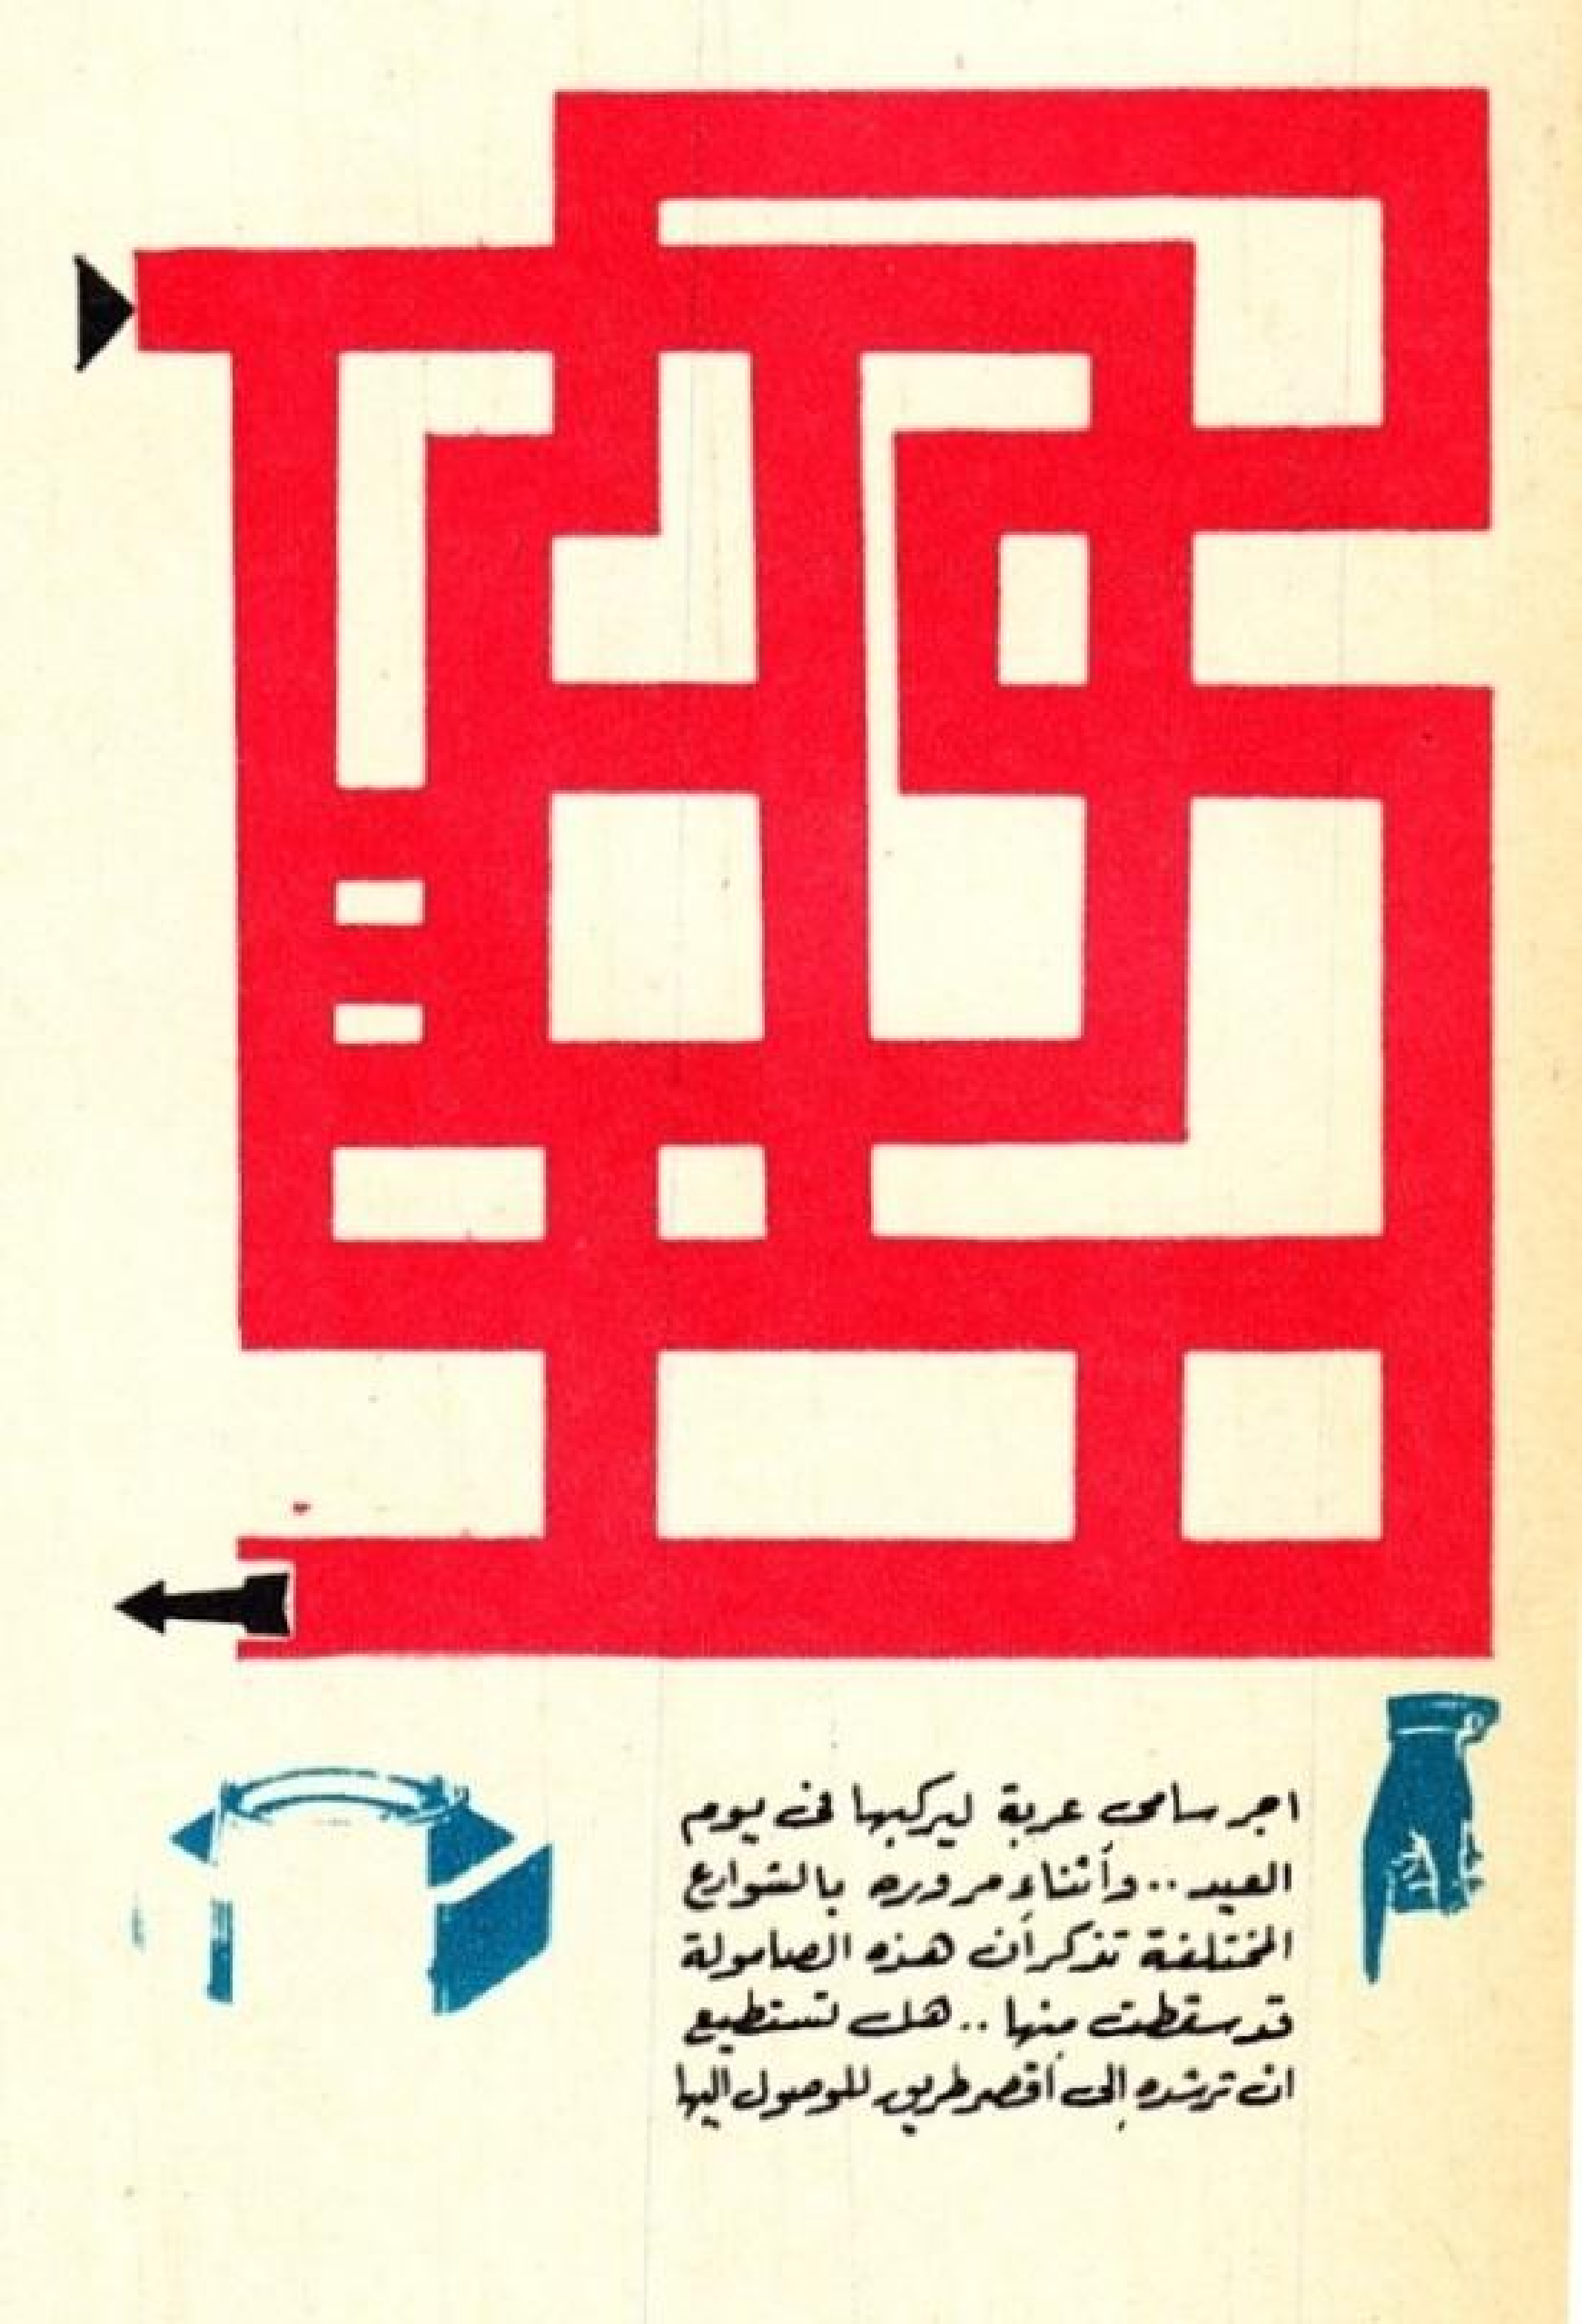 اجر سامى عربة ليركبها فى يوم
العيد .. وأثناء مروره بالشوارع
المختلفة تذكر أن هذه الصامولة
قد سقطت منها .. هل تستطيع
ان ترشده إلى أقصر طريق للوصول اليها